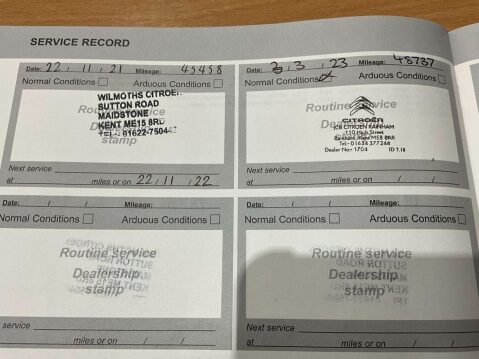 SERVICE RECORD
Date: 22 / 11 / 21 Mileage: 45458
Normal Conditions Arduous Conditions
Routine service
Dealership
stamp
WILMOTHS CITROEN
SUTTON ROAD
MAIDSTONE
KENT ME15 8RD
TEL: 01622-7504
Next service
at miles or on 22 / 11 / 22
Date: 3 / 3 / 23 Mileage: 48737
Normal Conditions Arduous Conditions
Routine service
stamp
CITROËN
CITROEN RAINHAM
110 High Street
Rainham, Kent ME8 8AR
Tel: 01634 377244
Dealer No: 1704 ID 7.18
Next service
at miles or on / /
Date: / / Mileage:
Normal Conditions Arduous Conditions
Routine service
Dealership
stamp
service
at miles or on / /
Date: / / Mileage:
Normal Conditions Arduous Conditions
Routine service
Dealership
stamp
Next service
at miles or on / /